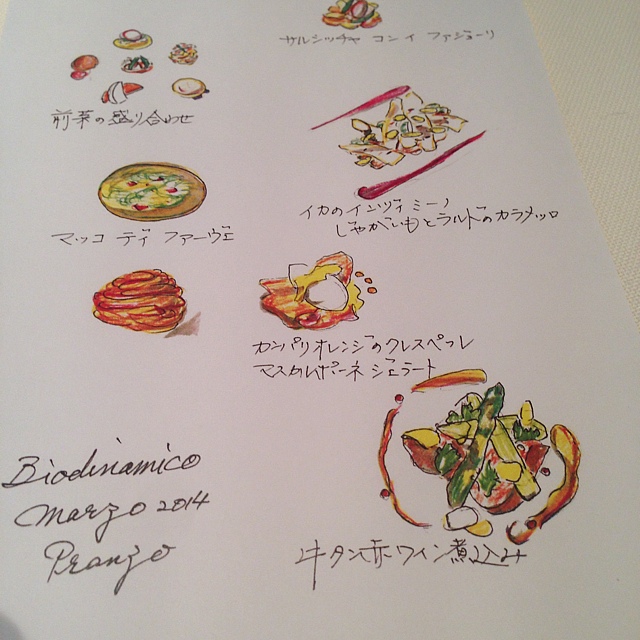 サルシッチャ コン イ ファジョーリ
前菜の盛り合わせ
イカのインツィミーノ
じゃがいもとラルドのカラメッロ
マッコ ディ ファーヴェ
カンパリオレンジのクレスペッレ
マスカルポーネジェラート
Biodinamico
marzo 2014
Pranzo
牛タン赤ワイン煮込み